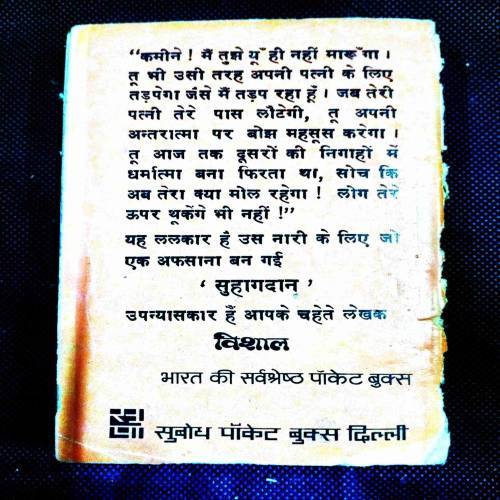 “कमीने ! मैं तुझे यूँ ही नहीं मारूँगा ।
तू भी उसी तरह अपनी पत्नी के लिए
तड़पेगा जैसे मैं तड़प रहा हूँ । जब तेरी
पत्नी तेरे पास लौटेगी, तू अपनी
अन्तरात्मा पर बोझ महसूस करेगा ।
तू आज तक दूसरों की निगाहों में
धर्मात्मा बना फिरता था, सोच कि
अब तेरा क्या मोल रहेगा ! लोग तेरे
ऊपर थूकेंगे भी नहीं !”
यह ललकार है उस नारी के लिए जो
एक अफसाना बन गई
‘ सुहागदान ’
उपन्यासकार हैं आपके चहेते लेखक
विशाल
भारत की सर्वश्रेष्ठ पॉकेट बुक्स
सुबोध पॉकेट बुक्स दिल्ली